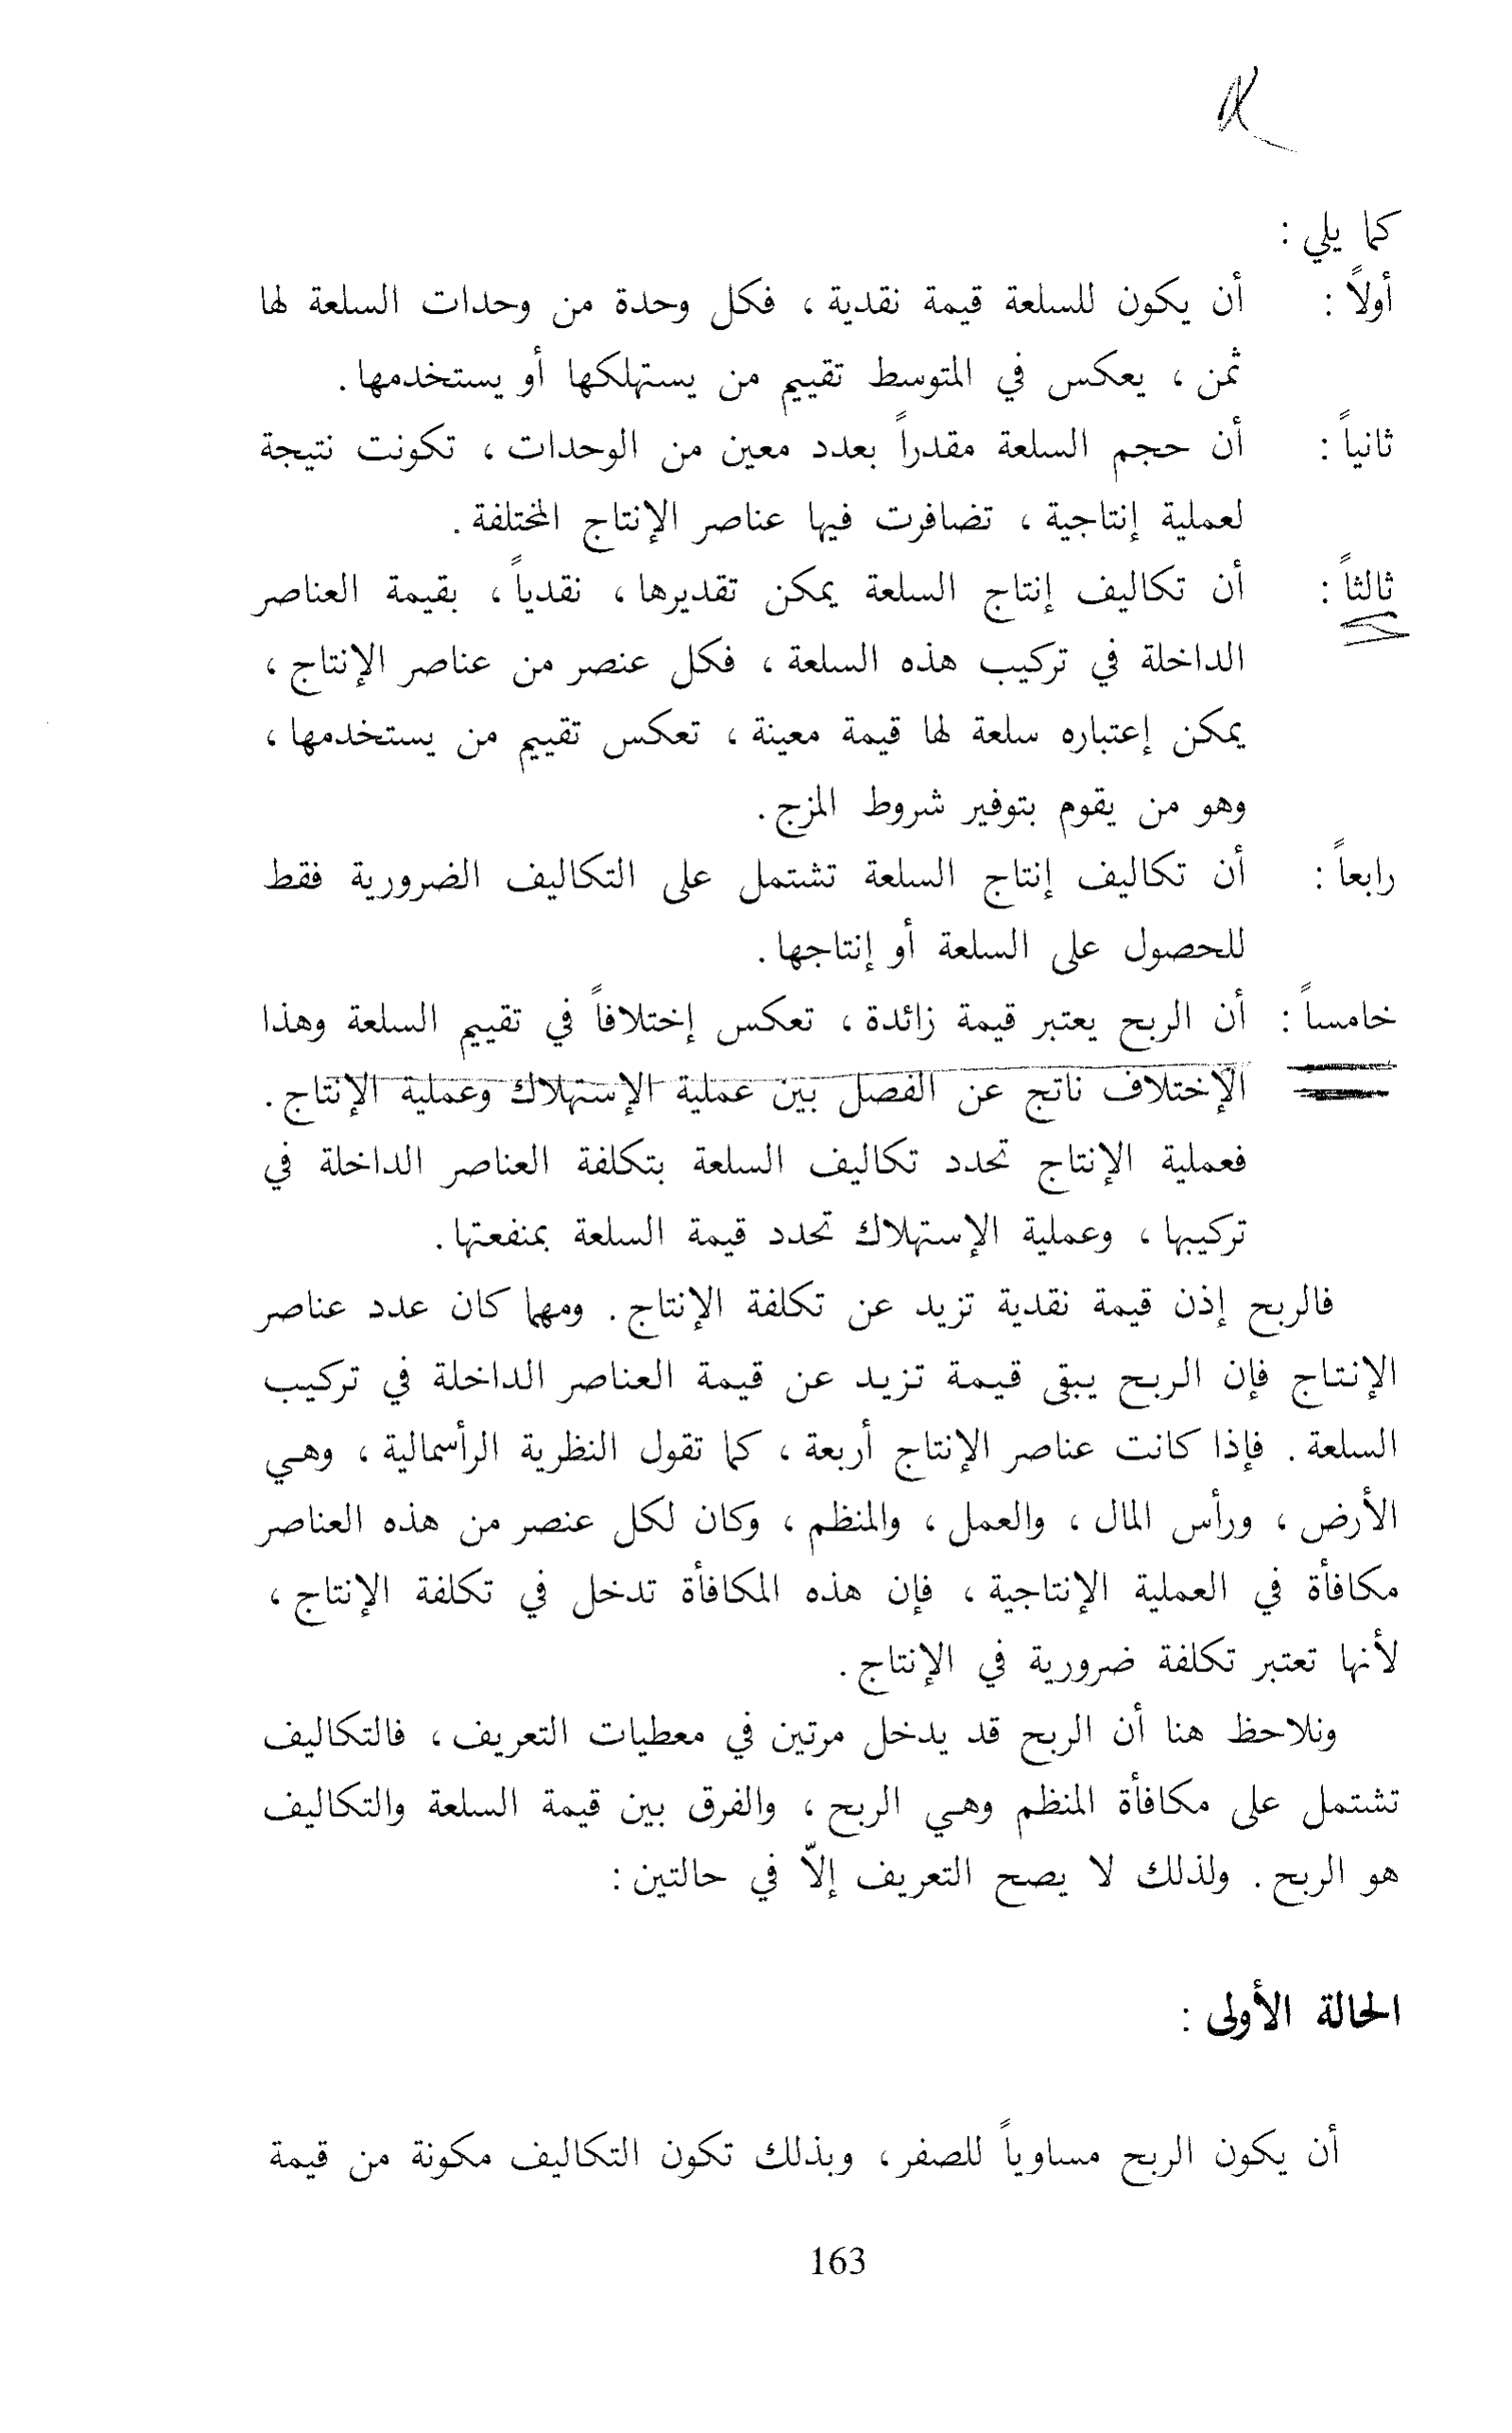 كما يلي :
أولاً : أن يكون للسلعة قيمة نقدية ، فكل وحدة من وحدات السلعة لها
ثمن ، يعكس في المتوسط تقييم من يستهلكها أو يستخدمها .
ثانياً : أن حجم السلعة مقدراً بعدد معين من الوحدات ، تكونت نتيجة
لعملية إنتاجية ، تضافرت فيها عناصر الإنتاج المختلفة .
ثالثاً : أن تكاليف إنتاج السلعة يمكن تقديرها ، نقدياً ، بقيمة العناصر
الداخلة في تركيب هذه السلعة ، فكل عنصر من عناصر الإنتاج ،
يمكن إعتباره سلعة لها قيمة معينة ، تعكس تقييم من يستخدمها ،
وهو من يقوم بتوفير شروط المزج .
رابعاً : أن تكاليف إنتاج السلعة تشتمل على التكاليف الضرورية فقط
للحصول على السلعة أو إنتاجها .
خامساً : أن الربح يعتبر قيمة زائدة ، تعكس إختلافاً في تقييم السلعة وهذا
الإختلاف ناتج عن الفصل بين عملية الإستهلاك وعملية الإنتاج .
فعملية الإنتاج تحدد تكاليف السلعة بتكلفة العناصر الداخلة في
تركيبها ، وعملية الإستهلاك تحدد قيمة السلعة بمنفعتها .
فالربح إذن قيمة نقدية تزيد عن تكلفة الإنتاج . ومهما كان عدد عناصر
الإنتاج فإن الربح يبقى قيمة تزيد عن قيمة العناصر الداخلة في تركيب
السلعة . فإذا كانت عناصر الإنتاج أربعة ، كما تقول النظرية الرأسمالية ، وهي
الأرض ، ورأس المال ، والعمل ، والمنظم ، وكان لكل عنصر من هذه العناصر
مكافأة في العملية الإنتاجية ، فإن هذه المكافأة تدخل في تكلفة الإنتاج ،
لأنها تعتبر تكلفة ضرورية في الإنتاج .
ونلاحظ هنا أن الربح قد يدخل مرتين في معطيات التعريف ، فالتكاليف
تشتمل على مكافأة المنظم وهي الربح ، والفرق بين قيمة السلعة والتكاليف
هو الربح . ولذلك لا يصح التعريف إلاّ في حالتين :
الحالة الأولى :
أن يكون الربح مساوياً للصفر ، وبذلك تكون التكاليف مكونة من قيمة
163